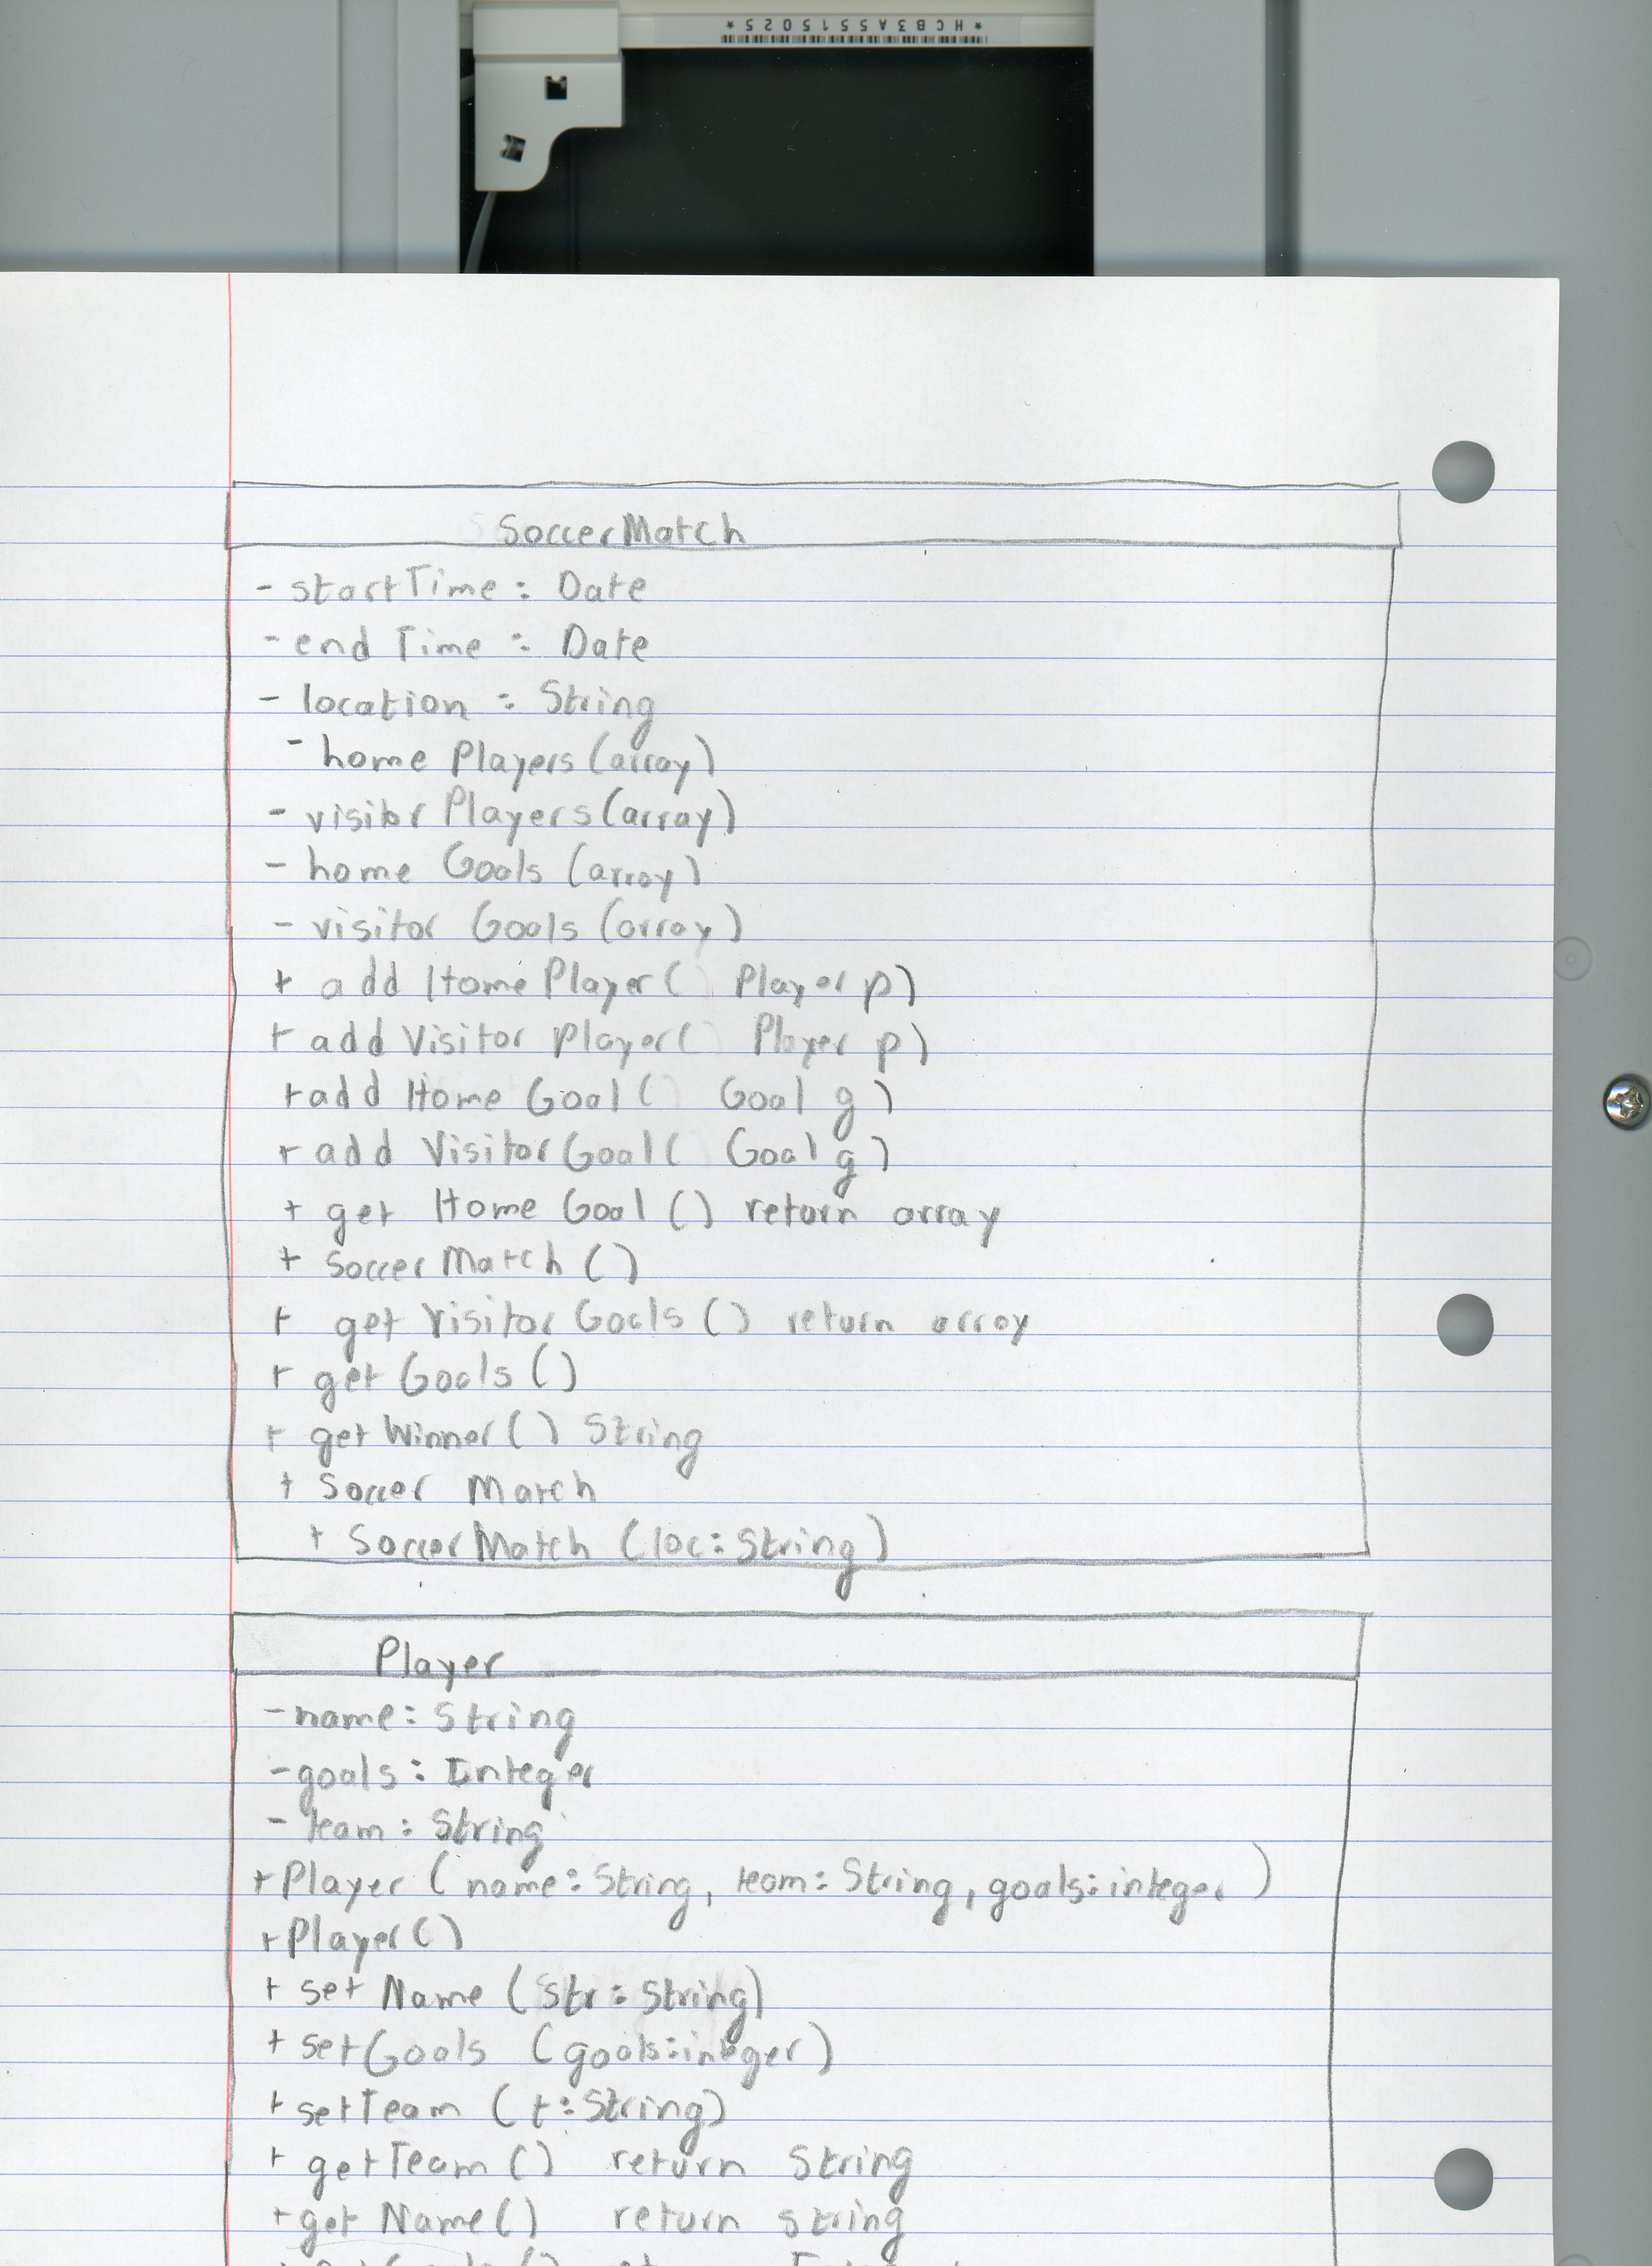 *HCB3A5515025*
SoccerMatch
- startTime : Date
- end Time : Date
- location : String
- home Players (array)
- visitor Players (array)
- home Goals (array)
- visitor Goals (array)
+ add Home Player ( Player p)
+ add Visitor Player ( Player p)
+ add Home Goal ( Goal g)
+ add Visitor Goal ( Goal g)
+ get Home Goal () return array
+ Soccer Match ()
+ get Visitor Goals () return array
+ get Goals ()
+ get Winner () String
+ Soccer Match
+ Soccer Match (loc: String)
Player
- name: String
- goals: Integer
- team: String
+ Player (name: String, team: String, goals: integer)
+ Player ()
+ set Name (Str: String)
+ setGoals (goals: integer)
+ setTeam (t: String)
+ getTeam () return String
+ get Name () return string